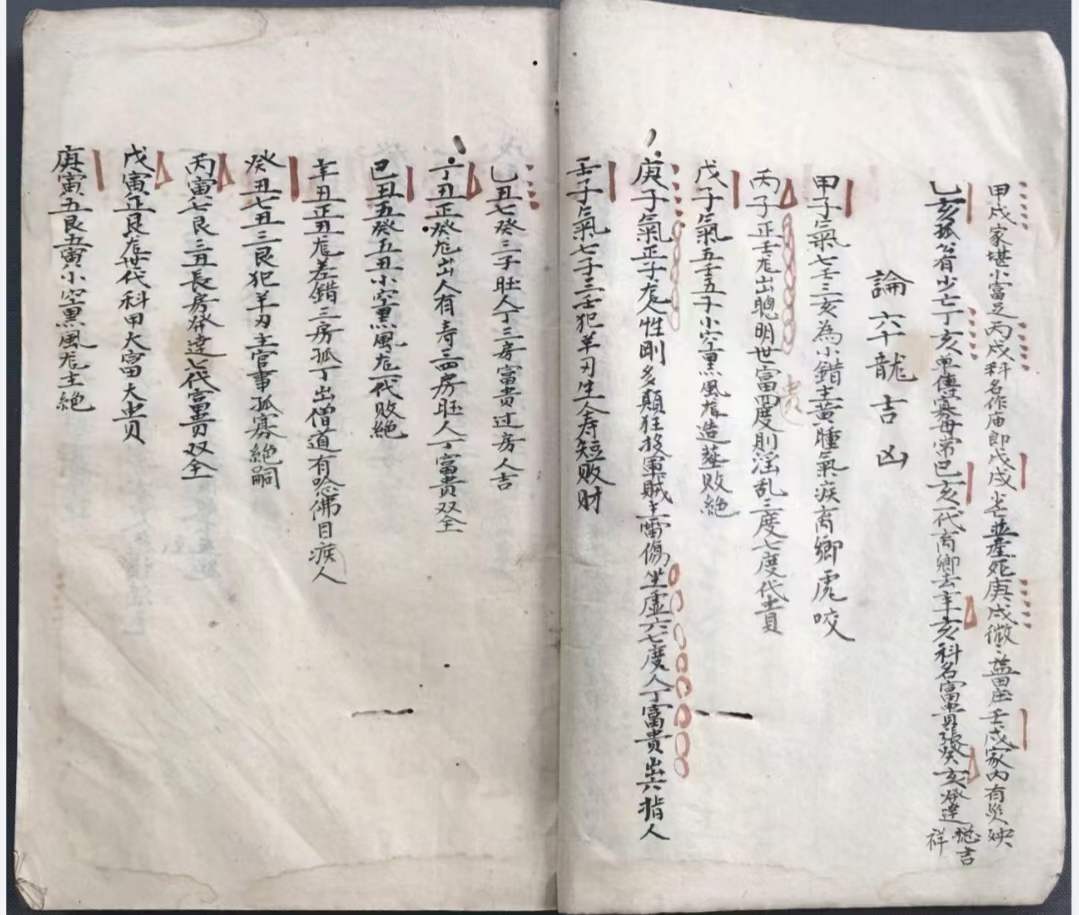 甲戌家堪小富足丙戌科名作庙郎戊戌老並産死庚戌微微蓄庄壬戌家内有災殃
乙亥孤翁省少亡丁亥单傳寡母常巳亥一代离鄉去辛亥科名富貴張癸亥發達総吉祥
論六十龍吉凶
甲子氣七壬三亥為小錯主黄腫氣疾离鄉虎咬
丙子正壬龙出聰明世富四度則淫乱三度七度代貴
戊子氣五壬五子小空黑風指造塟敗絶
庚子氣正子龙性剛多顛狂投軍賊主雷傷坐虚六七度人丁富貴出六指人
壬子氣七子三壬犯羊刃生人寿短敗财
乙丑七癸三子旺人丁三房富貴过房人吉
丁丑正癸龙出人有寿三四房旺人丁富貴双全
巳丑五癸五丑小空黑風龙一代敗絶
辛丑正丑龙差錯三房孤丁出僧道有唸佛目疾人
癸丑七丑三艮犯羊刃主官事孤寡絶嗣
丙寅七艮三丑長房發達七代富貴双全
戊寅正艮龙世代科甲大富大貴
庚寅五艮五寅小空黑風龙主絶